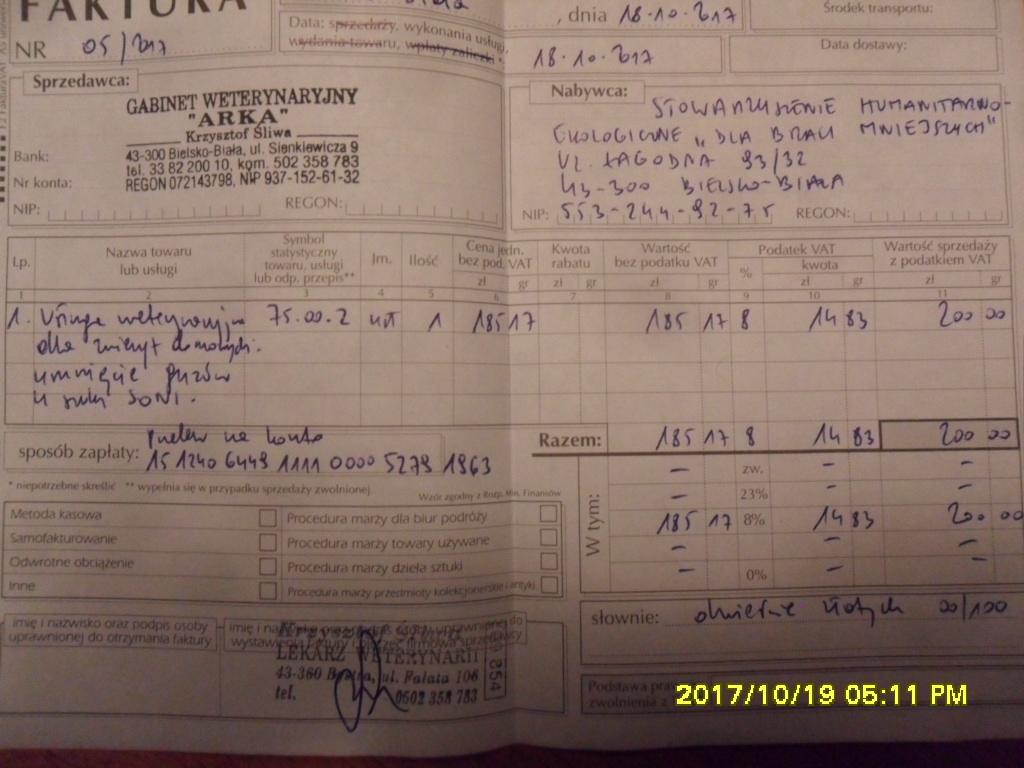 FAKTURA
NR 05/2017
, dnia 18.10.2017
Środek transportu:
Data: sprzedaży, wykonania usługi,
wydania towaru, wpłaty zaliczki *
18.10.2017
Data dostawy:
Sprzedawca:
GABINET WETERYNARYJNY
"ARKA"
Krzysztof Śliwa
43-300 Bielsko-Biała, ul. Sienkiewicza 9
tel. 33 82 200 10, kom. 502 358 783
REGON 072143798, NIP 937-152-61-32
Bank:
Nr konta:
NIP:
REGON:
Nabywca:
STOWARZYSZENIE HUMANITARNO-
EKOLOGICZNE „DLA BRACI MNIEJSZYCH"
UL. ŁAGODNA 93/32
43-300 BIELSKO-BIAŁA
NIP: 553-244-92-75 REGON:
Lp. Nazwa towaru lub usługi Symbol statystyczny towaru, usługi lub odp. przepis** Jm. Ilość Cena jedn. bez pod. VAT zł gr Kwota rabatu zł gr Wartość bez podatku VAT zł gr Podatek VAT % kwota zł gr Wartość sprzedaży z podatkiem VAT zł gr
1 2 3 4 5 6 7 8 9 10 11
1. Usługa weterynaryjna 75.00.2 szt 1 185 17 185 17 8 14 83 200 00
dla zwierząt domowych.
usunięcie guzów
u suki SONI.
Razem: 185 17 8 14 83 200 00
sposób zapłaty: przelew na konto
15 1240 6449 1111 0000 5279 1963
* niepotrzebne skreślić ** wypełnia się w przypadku sprzedaży zwolnionej
Wzór zgodny z Rozp. Min. Finansów
W tym:
– zw. – –
– 23% – –
185 17 8% 14 83 200 00
– – –
– 0% – –
Metoda kasowa
Procedura marży dla biur podróży
Samofakturowanie
Procedura marży towary używane
Odwrotne obciążenie
Procedura marży dzieła sztuki
Inne
Procedura marży przedmioty kolekcjonerskie i antyki
słownie: dwieście złotych 00/100
imię i nazwisko oraz podpis osoby
uprawnionej do otrzymania faktury
imię i nazwisko oraz podpis osoby uprawnionej do
wystawienia faktury
Krzysztof Śliwa
LEKARZ WETERYNARII
ul. Fałata 106
tel. 0502 358 783
Podstawa
zwolnienia z
2017/10/19 05:11 PM